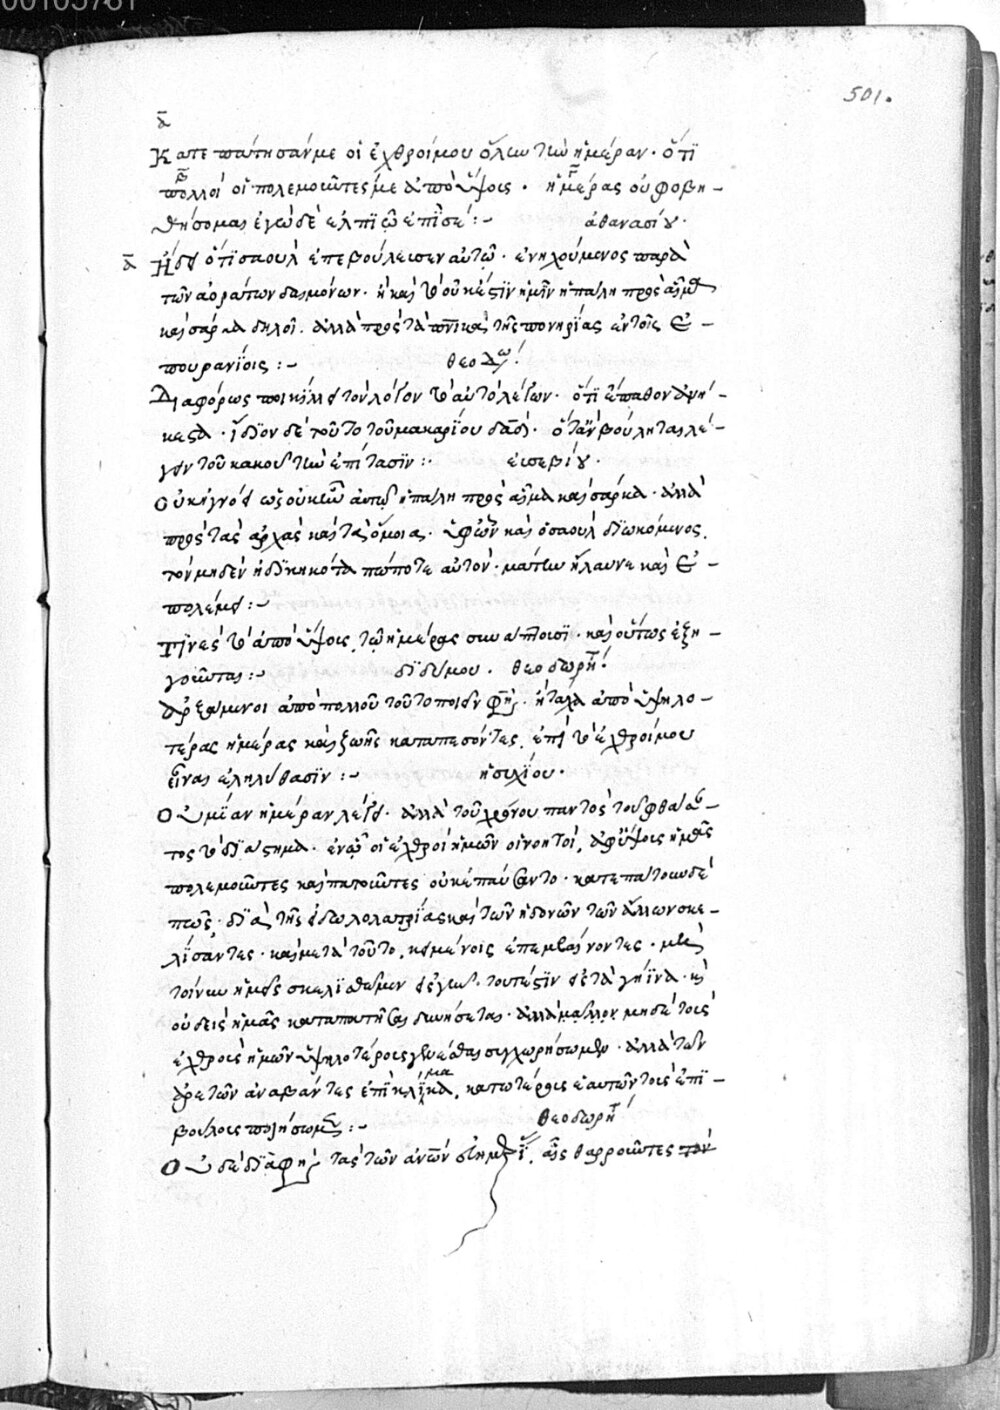 00105781
501.
α
Κατεπάτησάν με οἱ ἐχθροί μου ὅλην τὴν ἡμέραν· ὅτι
β γ
πολλοὶ οἱ πολεμοῦντές με ἀπὸ ὕψοις· ἡμέρας οὐ φοβη-
θήσομαι ἐγὼ δὲ ἐλπιῶ ἐπὶ σέ:- ἀθανασίου·
α Ἤδει ὅτι σαοὺλ ἐπεβούλευσεν αὐτῷ· ἐνηχούμενος παρὰ
τῶν ἀοράτων δαιμόνων· ἢ καὶ τὸ οὐκ ἔστιν ἡμῖν ἡ πάλη πρὸς αἷμα
καὶ σάρκα δηλοῖ. ἀλλὰ πρὸς τὰ πνικὰ τῆς πονηρίας ἐν τοῖς ἐ-
πουρανίοις:- θεοδω
Διαφόρως ποικίλλει τὸν λόγον τὸ αὐτὸ λέγων· ὅτι ἔπαθον ἀνή-
κεστα· ἴδιον δὲ τοῦτο τοῦ μακαρίου δαδ· ὅταν βούληται λέ-
γειν τοῦ κακοῦ τὴν ἐπίτασιν:· εὐσεβίου·
Οὐκ ἠγνόει ὡς οὐκ ἦν αὐτῷ ἡ πάλη πρὸς αἷμα καὶ σάρκα· ἀλλὰ
πρὸς τὰς ἀρχὰς καὶ τὰ ὅμοια· ὑφ' ὧν καὶ ὁ σαοὺλ διωκόμενος.
τὸν μηδὲν ἠδικηκότα πώποτε αὐτὸν· μάτην ἤλαυνε καὶ ἐ-
πολέμει:-
Τινὲς τὸ ἀπὸ ὕψοις τῷ ἡμέρας συνάπτοισι· καὶ οὕτως ἐξη-
γοῦνται:- διδύμου. θεοδωρήτ
Ἀρξάμενοι ἀπὸ πολλοῦ τοῦτο ποιεῖν φησὶ. ἢ τάχα ἀπὸ ὑψηλο-
τέρας ἡμέρας καὶ ζωῆς καταπεσόντες, ἐπὶ τὸ ἐχθροί μου
εἶναι ἐληλύθασιν:- ἡσυχίου·
Οὐ μίαν ἡμέραν λέγει· ἀλλὰ τοῦ χρόνου παντὸς τοῦ φθα
τος τὸ διάστημα· ἐν ᾧ οἱ ἐχθροὶ ἡμῶν οἱ νοητοί, ἀφ' ὕψοις ἡμᾶς
πολεμοῦντες καὶ πατοῦντες οὐκ ἐπαύσαντο· κατεπάτουν δέ
πως· διὰ τῆς εἰδωλολατρίας καὶ τῶν ἡδονῶν τῶν ἄλλων σκε-
λίσαντες· καὶ μετὰ τοῦτο, κειμένοις ἐπεμβαίνοντες· μὴ
τοίνυν ἡμεῖς σκελισθῶμεν εἰς γῆν· τουτέστιν εἰς τὰ γήϊνα· κ
οὐδεὶς ἡμᾶς καταπατῆσαι δυνήσεται· ἀλλὰ μᾶλλον μηδὲ τοὶς
ἐχθροὶς ἡμῶν ὑψηλοτέροις γενέσθαι συγχωρήσωμεν· ἀλλὰ τῶν
ἀρετῶν ἀναβάντες ἐπὶ κλίμακα, κατωτέρους ἑαυτῶν τοὶς ἐπι-
βούλοις ποιήσωμεν:- θεοδωρήτ
Οὐδὲ διαφη τὰς τῶν ἀνων αἷς θαρροῦντες τὸν